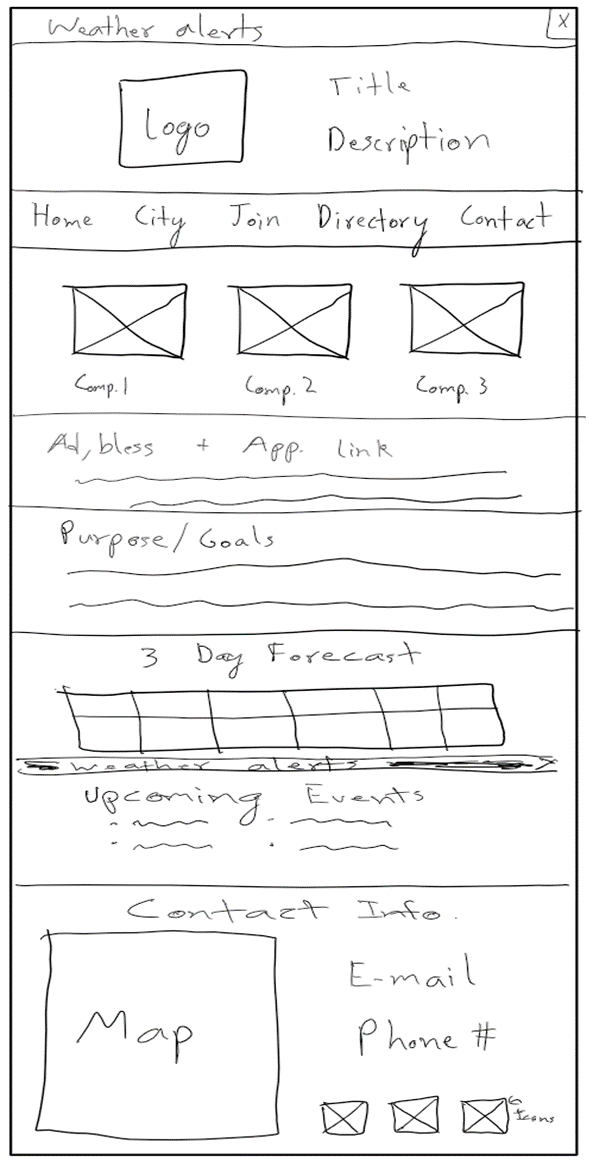 Weather alerts X
Logo
Title
Description
Home City Join Directory Contact
Comp. 1 Comp. 2 Comp. 3
Ad, bless + App. link
Purpose/Goals
3 Day Forecast
weather alerts
Upcoming Events
Contact Info.
Map
E-mail
Phone #
Icons